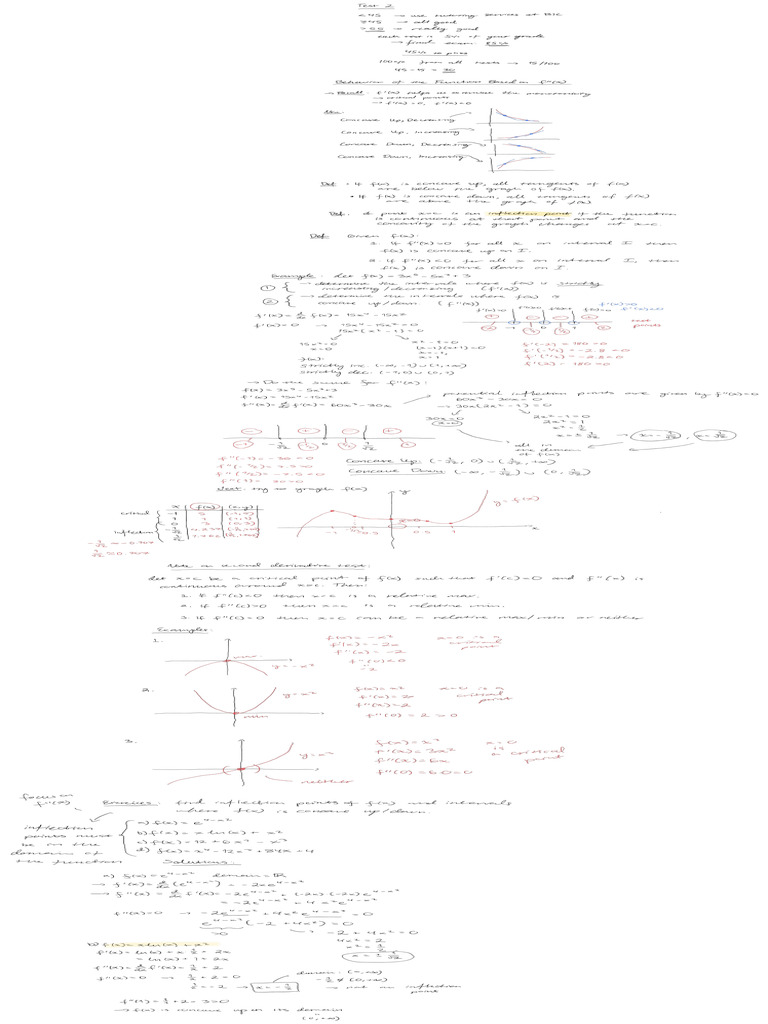 Test 2
<45 → use tutoring services at
≥45 → all good
>55 → really good
each test is 5% of your grade
→ final exam: 85%
45% to pass
100% from all tests → 15/100
45-15 = 30
Behavior of the Function Based on f''(x)
→ Recall: f'(x) helps us examine the monotonicity
→ critical points
→ f'(x)>0, f'(x)<0
Concave Up, Decreasing
Concave Up, Increasing
Concave Down, Decreasing
Concave Down, Increasing
Def • If f(x) is concave up, all tangents of f(x)
are below the graph of f(x).
• If f(x) is concave down, all tangents of f(x)
are above the graph of f(x)
Def: A point x=c is an inflection point if the function
is continuous at that point and the
concavity of the graph changes at x=c.
Def Given f(x):
1. If f''(x)>0 for all x on interval I then
f(x) is concave up on I.
2. If f''(x)<0 for all x on interval I, then
f(x) is concave down on I.
Example: Let f(x) = 3x⁵-5x³+3
① → determine the intervals where f(x) is strictly
increasing/decreasing (f'(x))
② → determine the intervals where f(x) is
concave up/down (f''(x))
f'(x) = d/dx f(x) = 15x⁴-15x²
f'(x)=0 → 15x⁴-15x²=0
15x²(x²-1)=0
15x²=0
x=0
x²-1=0
(x-1)(x+1)=0
x=-1,
x=1
test points
f'(-2) = 180 > 0
f'(-1/2) = -2.8 < 0
f'(1/2) = -2.8 < 0
f'(2) = 180 > 0
f(x):
strictly inc. (-∞,-1)∪(1,+∞)
strictly dec. (-1,0)∪(0,1)
→ Do the same for f''(x):
f(x) = 3x⁵-5x³+3
f'(x) = 15x⁴-15x²
f''(x) = d/dx f'(x) = 60x³-30x
potential inflection points are given by f''(x)=0
60x³-30x=0
→ 30x(2x²-1)=0
30x=0
x=0
2x²-1=0
2x²=1
x²=1/2
x=±1/√2 → x=-1/√2, x=1/√2
all in the domain of f(x)
f''(-1) = -30 < 0
f''(-1/2) = 7.5 > 0
f''(1/2) = -7.5 < 0
f''(1) = 30 > 0
Concave Up: (-1/√2, 0) ∪ (1/√2, +∞)
Concave Down: (-∞, -1/√2) ∪ (0, 1/√2)
Next: try to graph f(x)
x f(x) (x,y)
critical
inflection
-1/√2 ≈ -0.707
1/√2 ≈ 0.707
y=f(x)
-1 -0.5 0.5 1 x
second derivative test:
Let x=c be a critical point of f(x) such that f'(c)=0 and f''(x) is
continuous around x=c. Then:
1. If f''(c)<0 then x=c is a relative max.
2. If f''(c)>0 then x=c is a relative min.
3. If f''(c)=0 then x=c can be a relative max/min or neither
Examples:
1.
max
y=-x²
f(x) = -x²
f'(x) = -2x
f''(x) = -2
f''(0) < 0
-2
x=0 is a critical point
2.
y=x²
min
f(x) = x²
f'(x) = 2x
f''(x) = 2
f''(0) = 2 > 0
x=0 is a critical point
3.
y=x³
neither
f(x) = x³
f'(x) = 3x²
f''(x) = 6x
f''(0) = 6·0=0
x=0 is a critical point
focus on f''(x)
Exercises: find inflection points of f(x) and intervals
where f(x) is concave up/down.
inflection points must be in the domain of the function
a) f(x) = e^(4-x²)
b) f(x) = x ln(x) + x²
c) f(x) = 12 + 6x² - x³
d) f(x) = x⁴ - 12x³ + 84x + 4
Solutions:
a) f(x) = e^(4-x²) domain = ℝ
→ f'(x) = d/dx (e^(4-x²)) = -2xe^(4-x²)
→ f''(x) = d/dx f'(x) = -2e^(4-x²) + (-2x)(-2x)e^(4-x²)
= -2e^(4-x²) + 4x²e^(4-x²)
f''(x)=0 → -2e^(4-x²) + 4x²e^(4-x²) = 0
e^(4-x²)(-2+4x²)=0
>0
→ -2+4x²=0
4x²=2
x²=1/2
x=±1/√2
b) f(x) = x ln(x) + x²
f'(x) = ln(x) + x·1/x + 2x
= ln(x) + 1 + 2x
f''(x) = d/dx f'(x) = 1/x + 2
f''(x)=0 → 1/x + 2 = 0
1/x = -2 → x = -1/2
domain: (0,+∞)
-1/2 ∉ (0,+∞)
→ not an inflection point
f''(1) = 1/1 + 2 = 3 > 0
→ f(x) is concave up on its domain
(0,+∞)